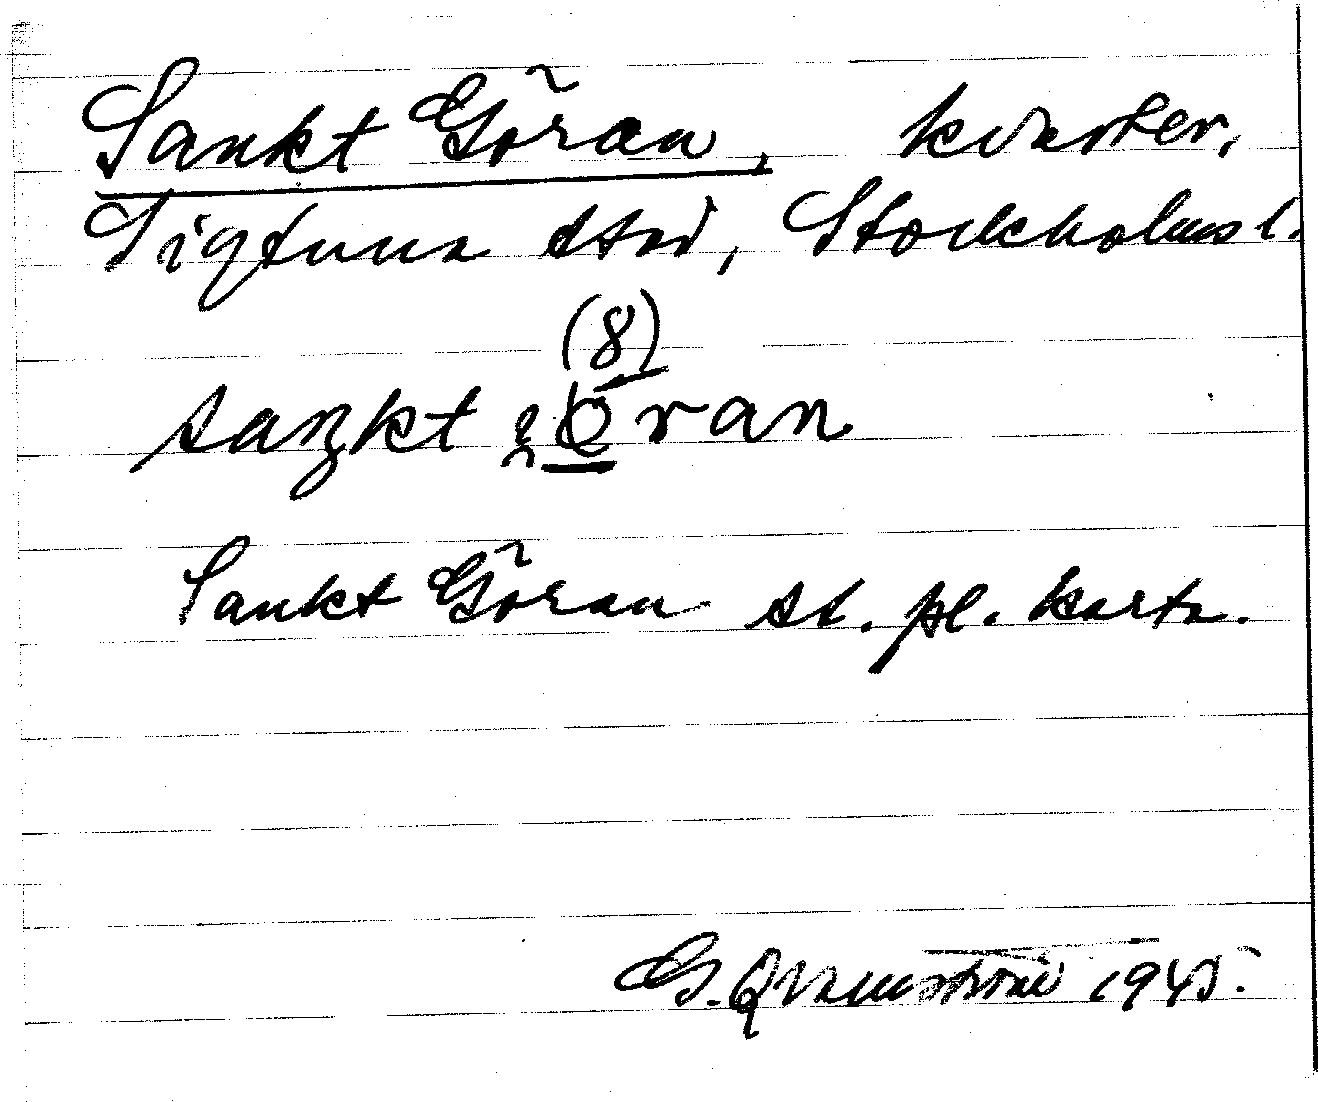 Sankt Göran, kvarter,
Sigtuna stad, Stockholms l.
(8)
saŋkt ȷöran
Sankt Göran st. pl. karta.
G. Qvarnström 1945.